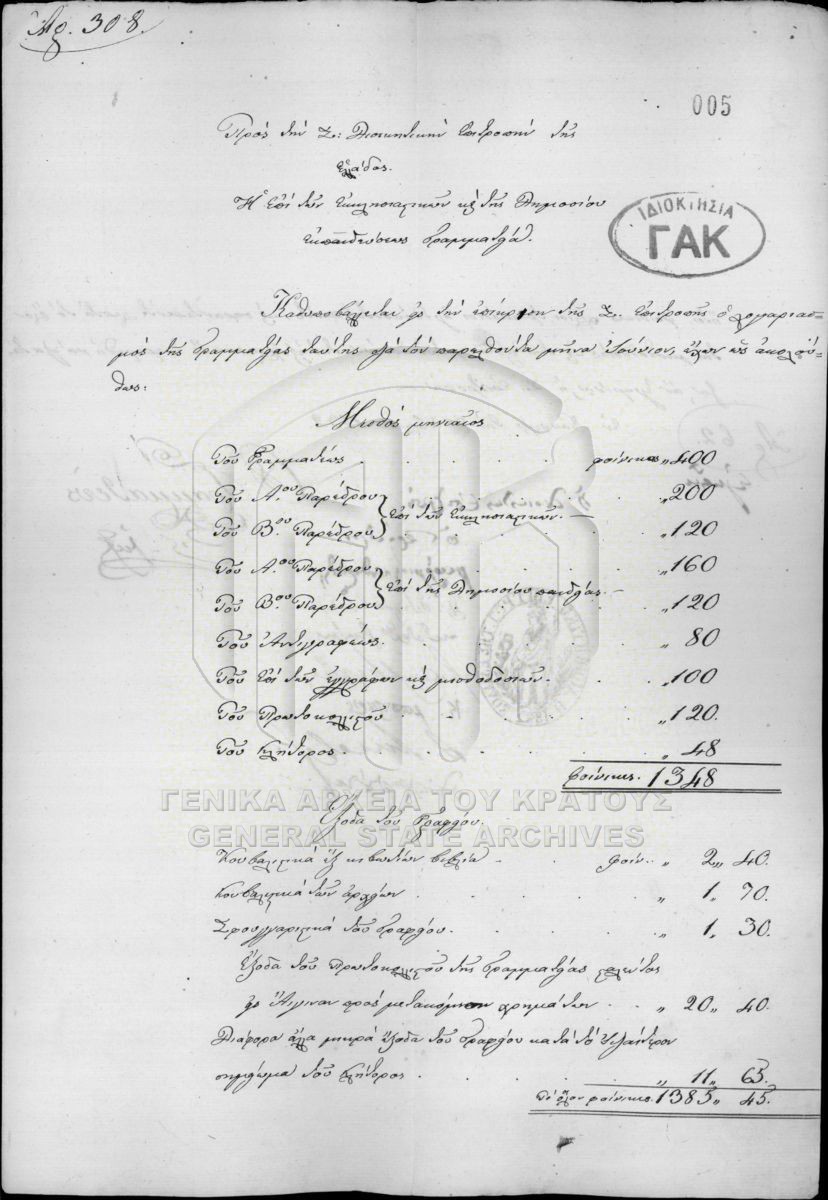 Ἀρ. 308.
005
Πρὸς τὴν Σ: Διοικητικὴν Ἐπιτροπὴν τῆς
Ἑλλάδος.
Ἡ Ἐπὶ τῶν Ἐκκλησιαστικῶν κỳ τῆς Δημοσίου
Ἐκπαιδεύσεως Γραμματεία.
ΙΔΙΟΚΤΗΣΙΑ
ΓΑΚ
Καθυποβάλλεται εἰς τὴν ἐπίκρισιν τῆς Σ. Ἐπιτροπῆς ὁ λογαριασ-
μὸς τῆς Γραμματείας ταύτης διὰ τὸν παρελθόντα μῆνα Ἰούνιον, ἔχων ὡς ἀκολού-
θως:
Μισθὸς μηνιαῖος
Τοῦ Γραμματέως . . . . φοίνικας „ 400
Τοῦ Α.ου Παρέδρου „ 200
Ἐπὶ τῶν Ἐκκλησιαστικῶν. —
Τοῦ Β.ου Παρέδρου „ 120
Τοῦ Α.ου Παρέδρου „ 160
Ἐπὶ τῆς Δημοσίου παιδείας —
Τοῦ Β.ου Παρέδρου „ 120
Τοῦ Ἀντιγραφέως. „ 80
Τοῦ Ἐπὶ τῶν ἐγγράφων κỳ μισθοδοσιῶν. „ 100
Τοῦ Πρωτοκολλιστοῦ „ 120.
Τοῦ Κλητῆρος. „ 48
φοίνικες. 1348
ΓΕΝΙΚΑ ΑΡΧΕΙΑ ΤΟΥ ΚΡΑΤΟΥΣ
GENERAL STATE ARCHIVES
Ἔξοδα τοῦ Γραφείου.
Κουβαλιτικὰ ἓξ κιβωτίων βιβλία . φοίν. „ 2„ 40.
Κουβαλητικὰ τῶν ἀρχείων „ 1„ 70.
Σφουγγαριστικὰ τοῦ Γραφείου. „ 1„ 30.
Ἔξοδα τοῦ Πρωτοκολλιστοῦ τῆς Γραμματείας σταλέντος
εἰς Αἴγιναν πρὸς μετακόμισιν χρημάτων „ 20„ 40.
Διάφορα ἄλλα μικρὰ ἔξοδα τοῦ Γραφείου κατὰ τὸ
σημείωμα τοῦ Κλητῆρος. „ 11„ 65.
τὸ ὅλον φοίνικες. 1385„ 45.